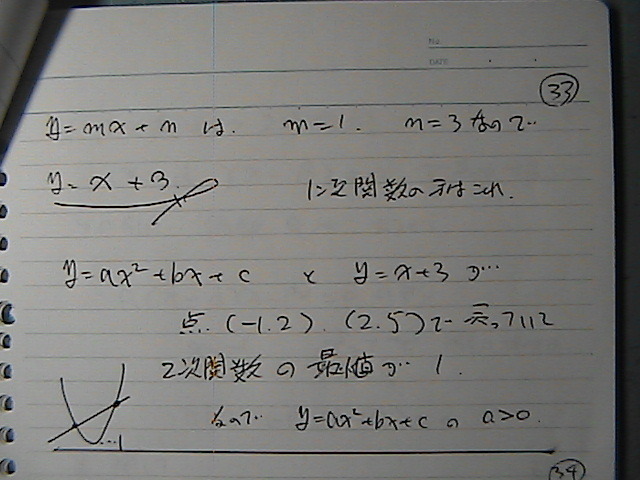 No.
DATE
㉝
y=mx+n は. m=1. n=3 なので…
y=x+3.
1次関数の式はこれ.
y=ax²+bx+c と y=x+3 が…
点. (-1.2). (2.5)で 交わって
2次関数 の 最小値が… 1.
なので… y=ax²+bx+c の a>0.
…1
㉞